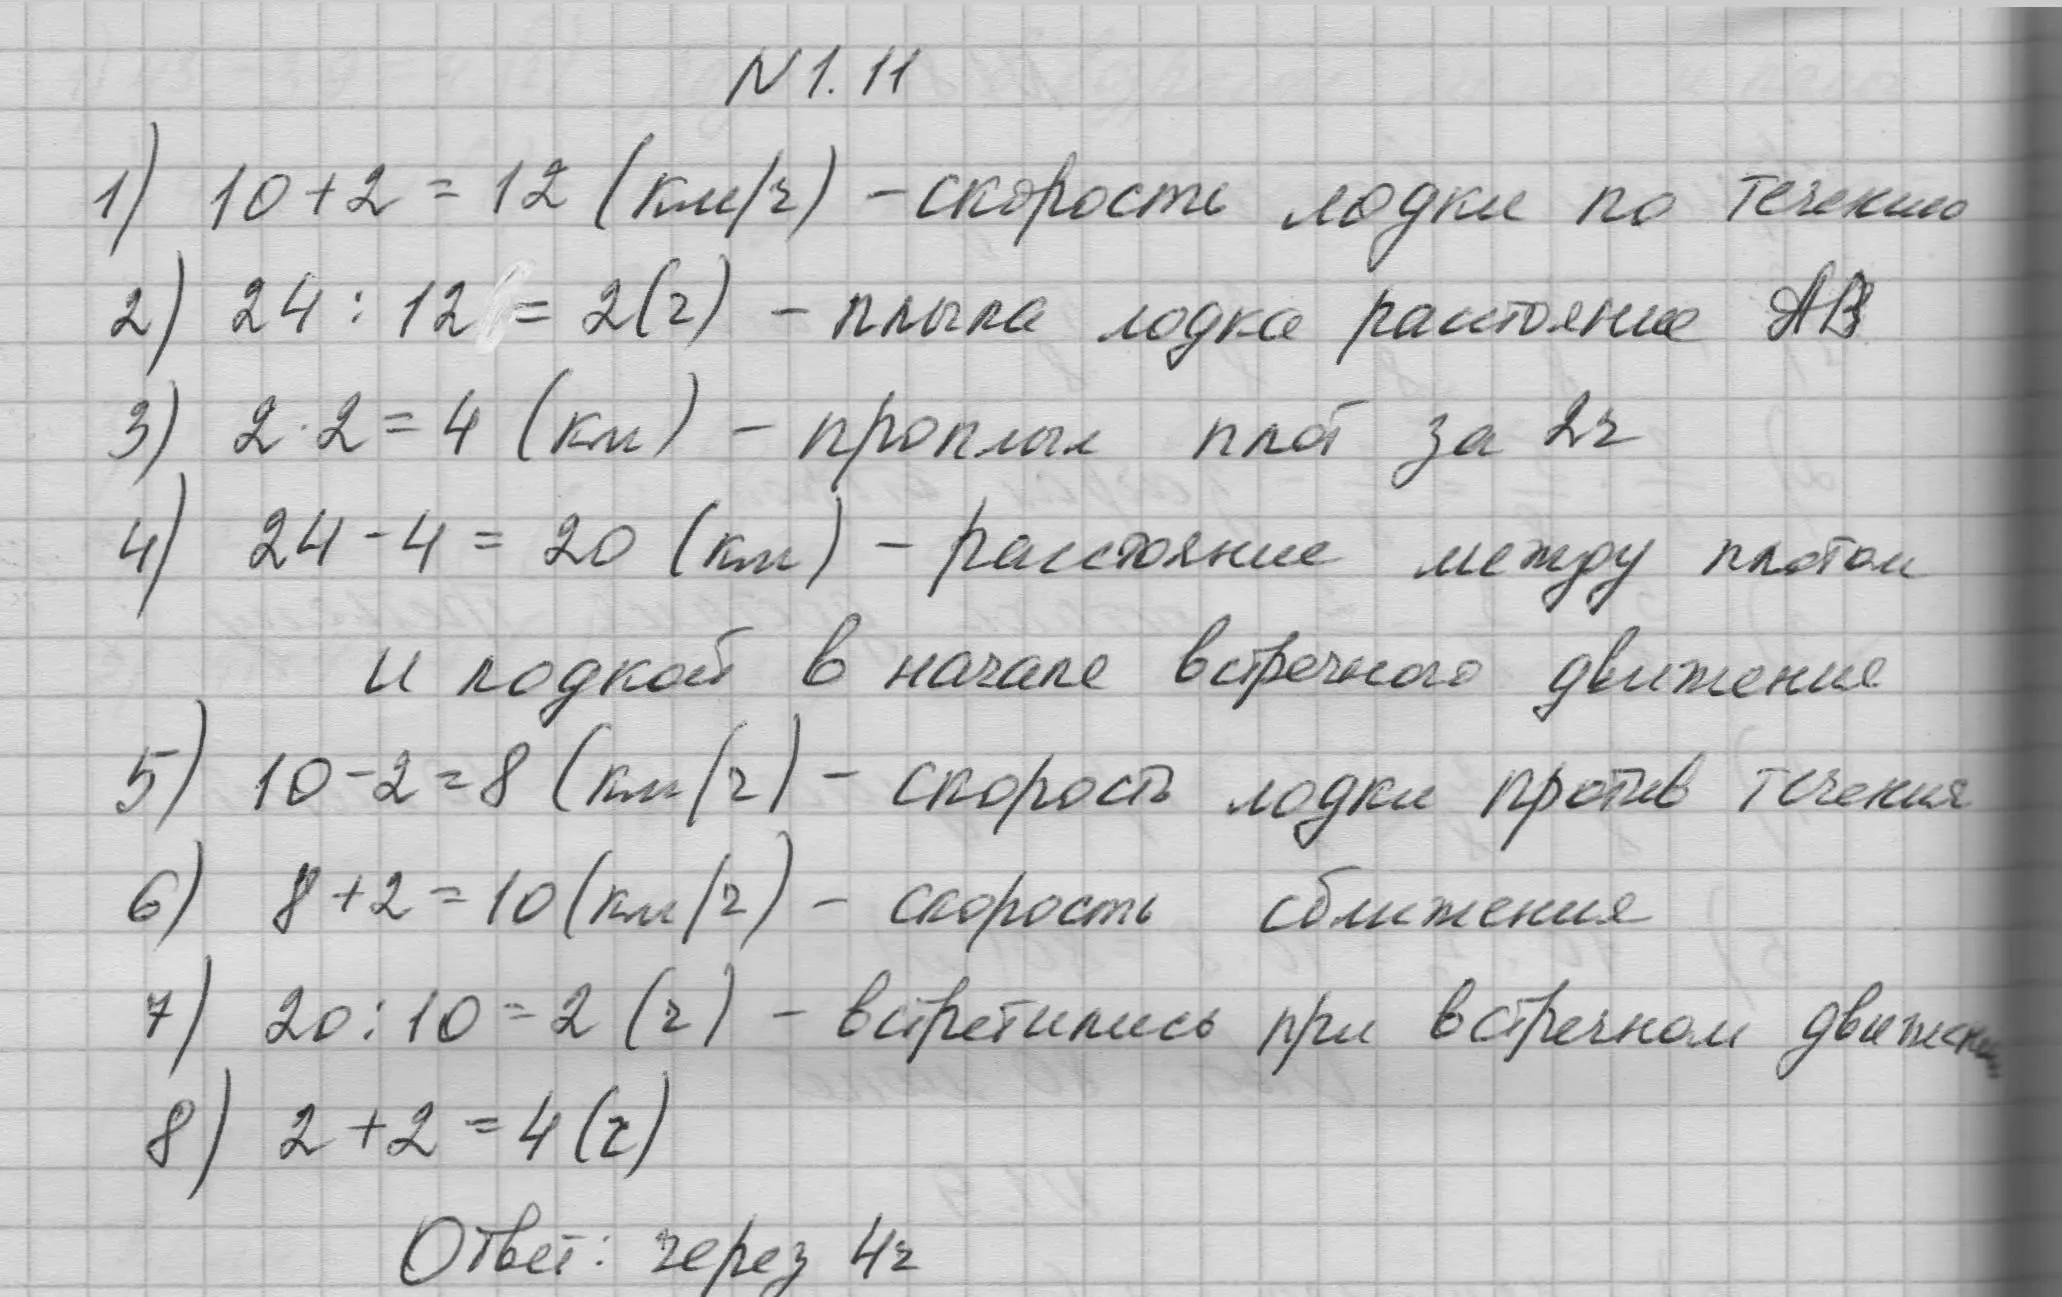 N 1.11
1) 10 + 2 = 12 (км/ч) – скорость лодки по течению
2) 24 : 12 = 2 (ч) – плыла лодка расстояние AB
3) 2 · 2 = 4 (км) – проплыл плот за 2ч
4) 24 - 4 = 20 (км) – расстояние между плотом
и лодкой в начале встречного движение
5) 10 - 2 = 8 (км/ч) – скорость лодки против течения
6) 8 + 2 = 10 (км/ч) – скорость сближения
7) 20 : 10 = 2 (ч) – встретились при встречном движении
8) 2 + 2 = 4 (ч)
Ответ: через 4ч